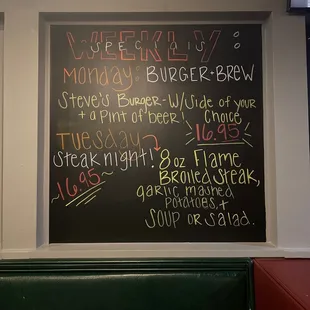 WEEKLY:
SPECIALS
MONDAY: BURGER + BREW
STEVE'S BURGER - W/SIDE OF YOUR
+ a PINT OF BEER! CHOICE
16.95
TUESDAY
STEAK NIGHT! 8oz FLAME
BROILED STEAK,
~16.95~ garlic mashed
POTATOES, +
SOUP OR SALAD.